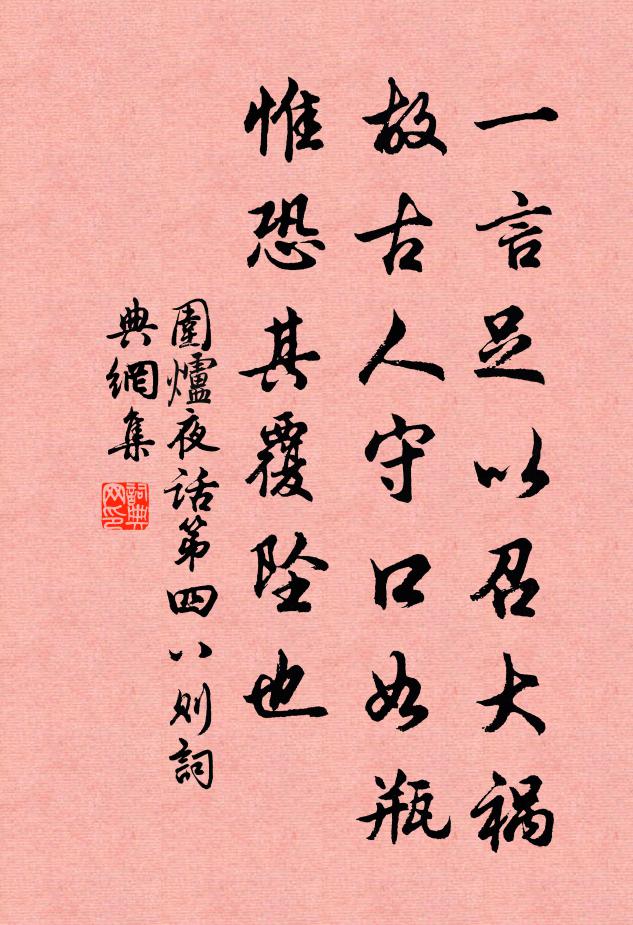 一言足以召大祸
故古人守口如瓶
惟恐其覆坠也
圍爐夜话第四八则詞
典網集
詞典网印